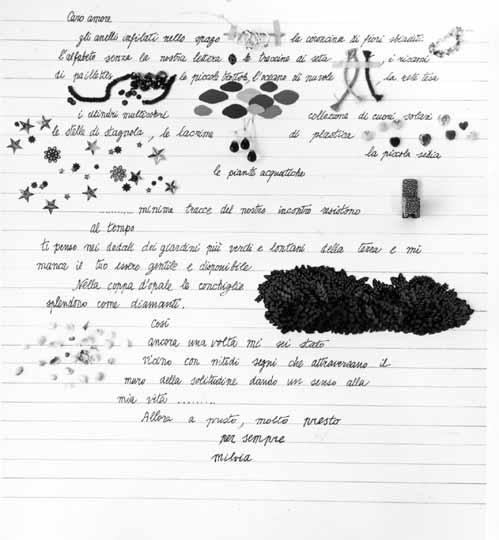 Caro amore
gli anelli infilati nello spago la coroncina di fiori sbiaditi
l'alfabeto senza la nostra lettera le treccine di seta, i ricami
di paillettes le piccole trottole, l'oceano di nuvole la rete tesa
i cilindri multicolori collezione di cuori, solitari
le stelle di stagnola, le lacrime di plastica
la piccola sedia
le piante acquatiche
.......... minime tracce del nostro incontro resistono
al tempo
ti penso nei dedali dei giardini più verdi e lontani della terra e mi
manca il tuo essere gentile e disponibile
Nella coppa d'opale le conchiglie
splendono come diamanti.
Così
ancora una volta mi sei stato
vicino con nitidi segni che attraversano il
muro della solitudine dando un senso alla
mia vita ..........
Allora a presto, molto presto
per sempre
milvia